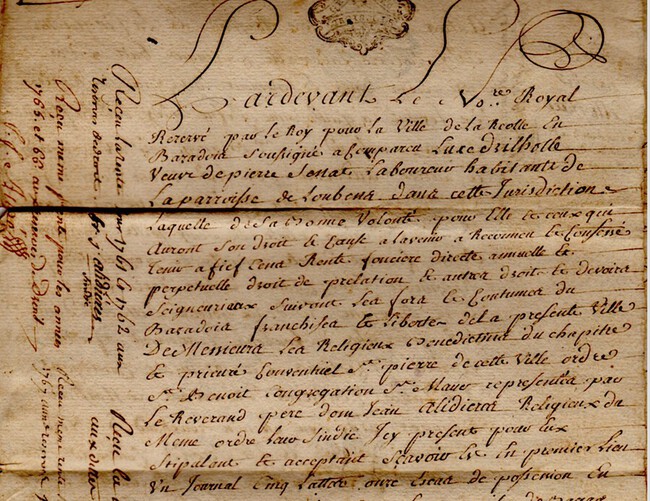 Pardevant Le No.re Royal
Rezervé par Le Roy pour La Ville de La Reolle En
Bazadois soussigné a Comparu Luxe
Veuve de pierre Senat Laboureur habitante de
La parroisse de Loubens dans cette Jurisdiction
Laquelle de sa bonne Volonté pour Elle & ceux qui
Auront son droit & Cause a lavenir a Reconnu & Confessé
tenir a fief Cens Rente fonciere directe annuelle &
perpetuelle droit de prelation & autres droits & devoirs
Seigneuriaux Suivant Les fors & Coutumes du
Bazadois franchises & Libertes de La presente Ville
De Messieurs Les Religieux Benedictins du chapitre
& prieuré Conventuel St. pierre de cette Ville ordre
St. Benoit Congregation St. Maur representes par
Le Reverand pere dom Jean Alidieres Religieux du
Meme ordre Leur Sindic Icy present pour Eux
Stipulant & acceptant Scavoir Est En premier Lieu
Un Journal Cinq Lattes onze Escas de possession En
Reçu la rente pour 1761 & 1762 aux
fr. j. alidieres
sindic
Reçu la
Reçu meme rente pour les années
1765 et 66 aux memes droit
1767